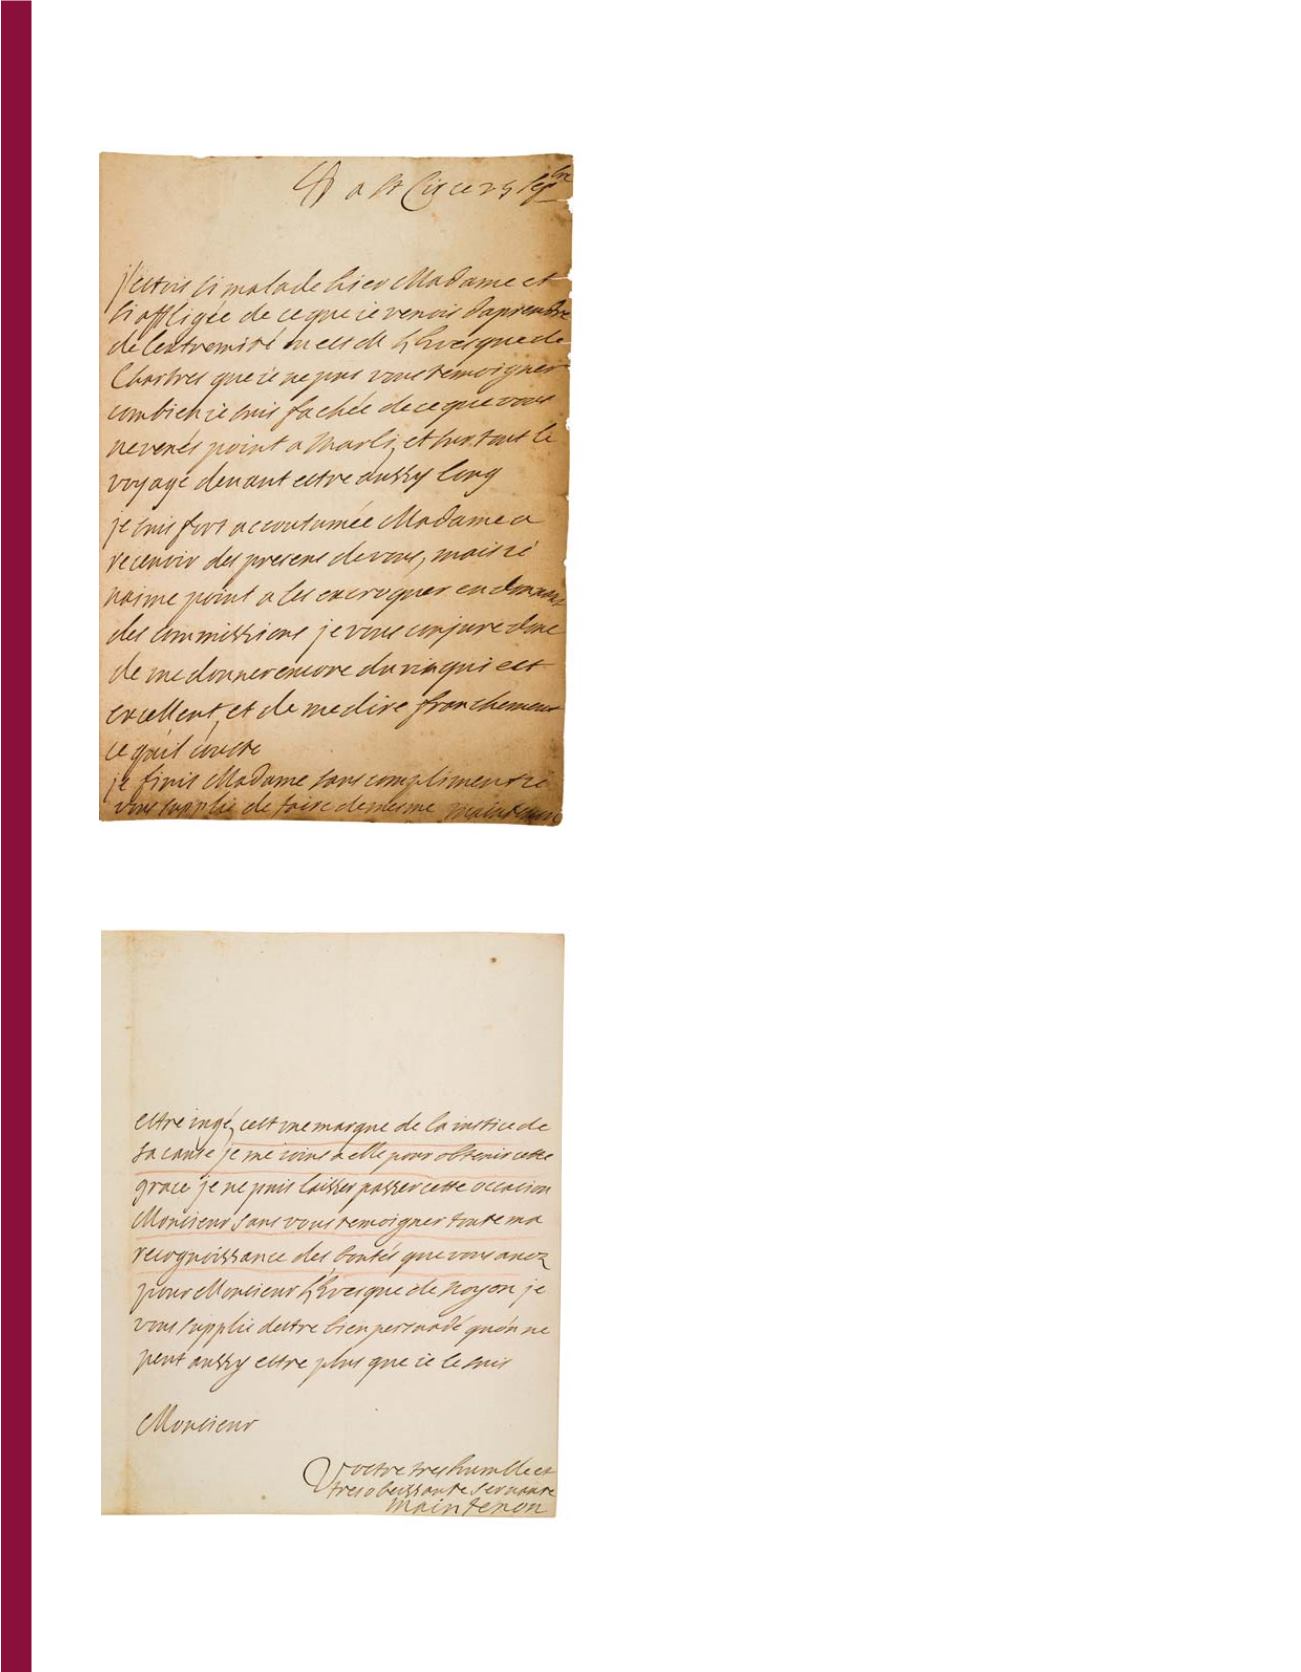 a St Cir ce 25 sepbre
j'estois si malade hier Madame et
si affligée de ce que ie venois daprendre
de lextremité ou est Mr lEvesque de
Chartres que ie ne pus vous temoigner
combien ie suis fachée de ce que vous
ne venés point a Marli, et sur tout le
voyage devant estre aussy long
je suis fort accoutumée Madame a
recevoir des presens de vous, mais ie
naime point a les excroquer en donnant
des commissions je vous conjure donc
de me donner encore du vin qui est
excellent, et de me dire franchement
ce quil couste
je finis Madame sans compliment ie
vous supplie de faire de mesme Maintenon
estre iugé, cest une marque de la iustice de
sa cause je me ioins a elle pour obtenir cette
grace je ne puis laisser passer cette occasion
Monsieur sans vous temoigner toute ma
recognoissance des bontés que vous avez
pour Monsieur lEvesque de Noyon je
vous supplie destre bien persuadé quon ne
peut aussy estre plus que ie le suis
Monsieur
Vostre tres humble et
tres obeissante servante
Maintenon